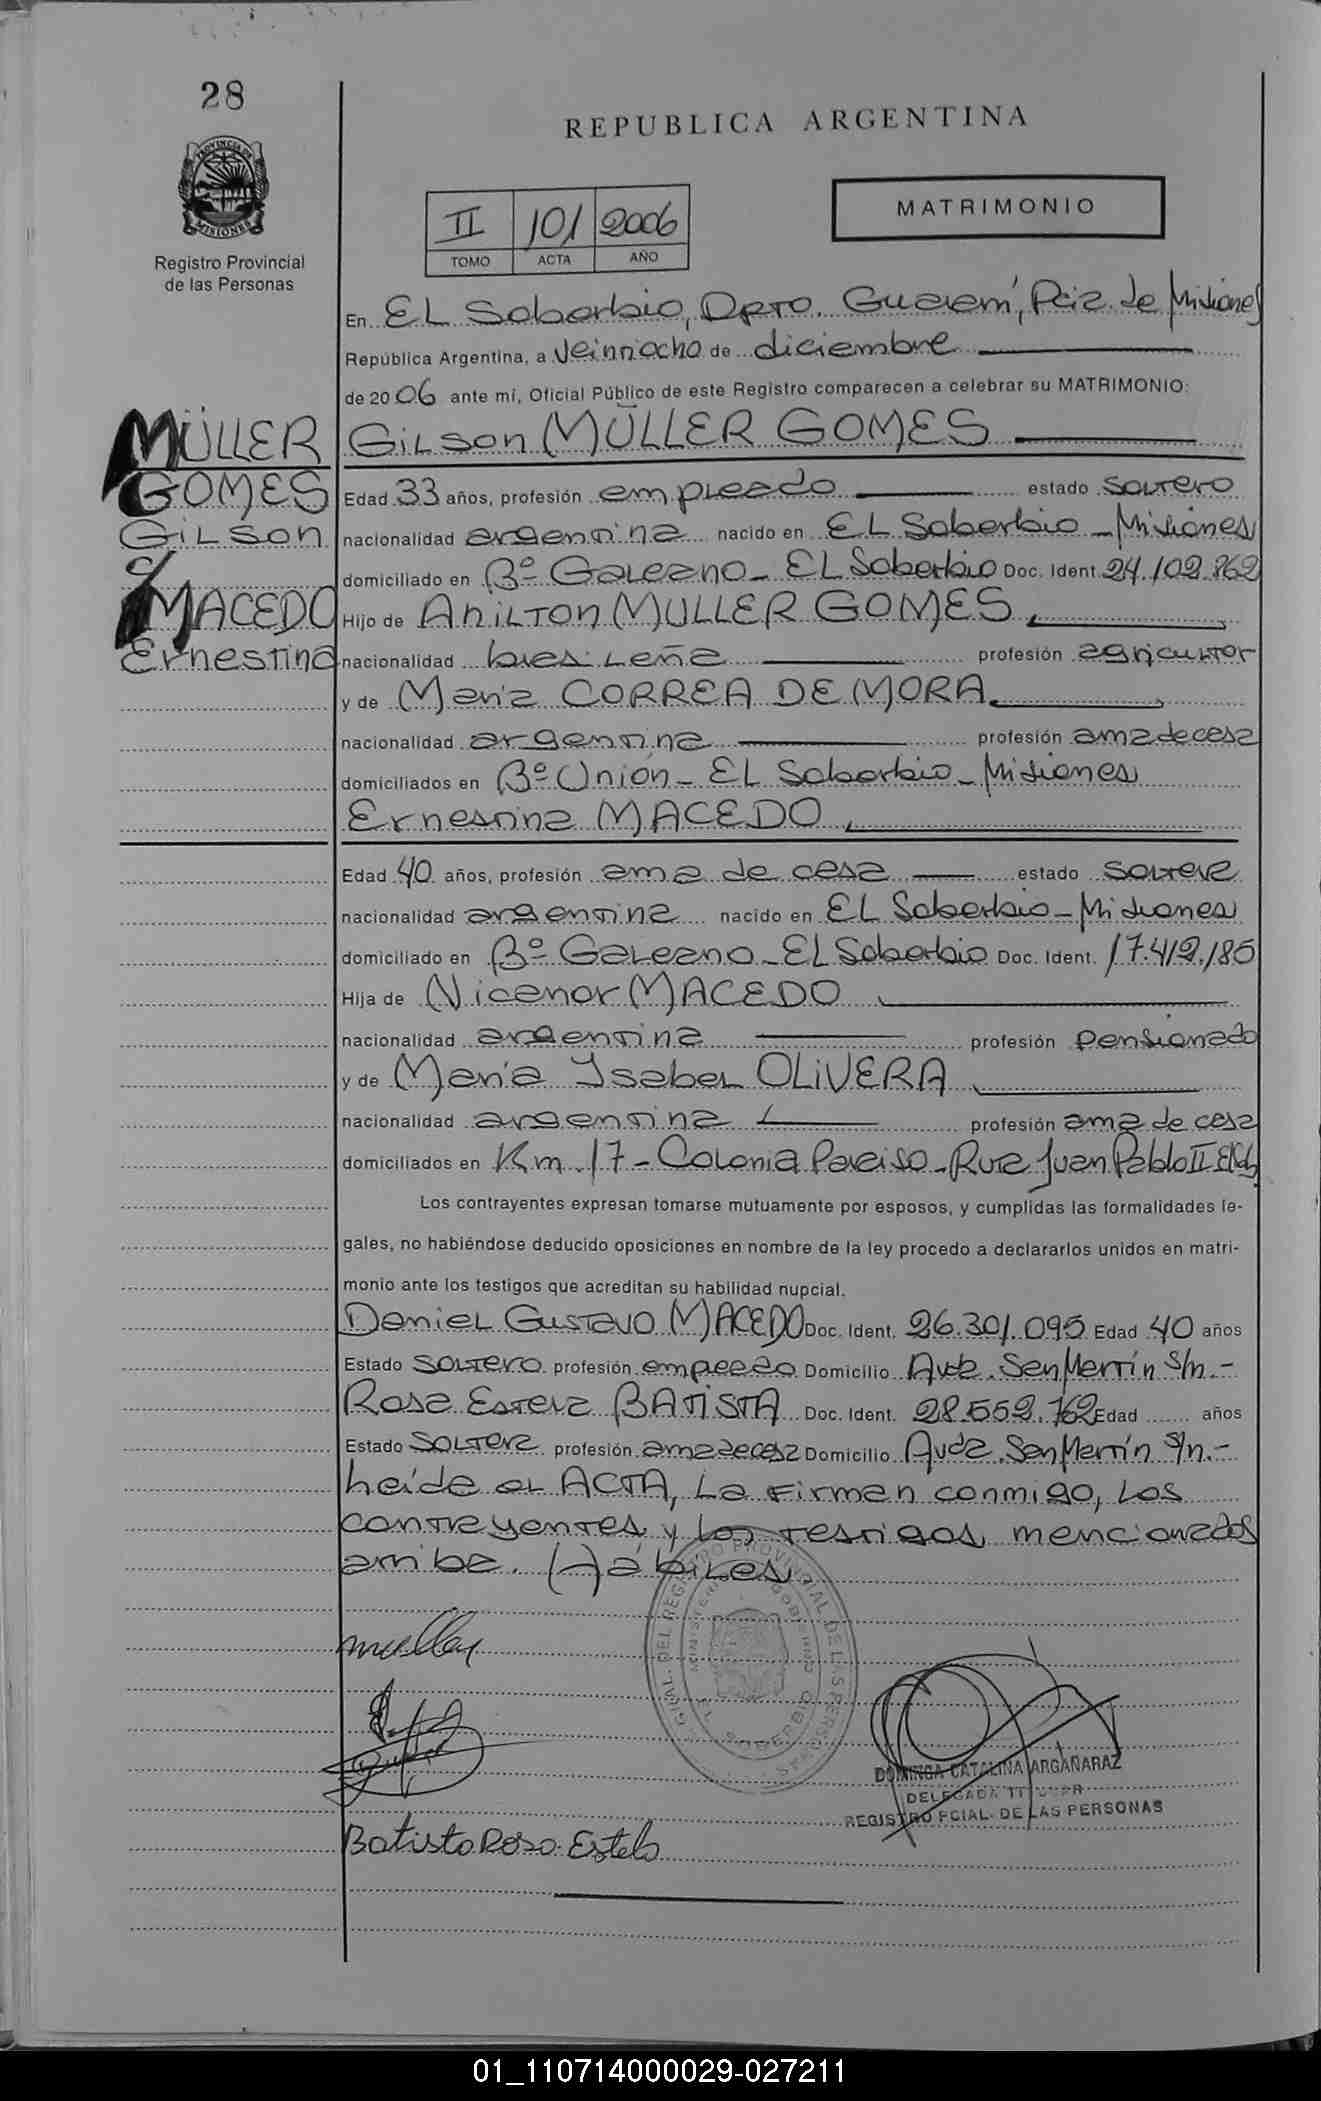 28
REPUBLICA ARGENTINA
PROVINCIA DE MISIONES
Registro Provincial
de las Personas
II 101 2006
TOMO ACTA AÑO
MATRIMONIO
En EL Soberbio, Dpto. Guaraní, Pcia. de Misiones
República Argentina, a Veintiocho de diciembre
de 2006 ante mí, Oficial Público de este Registro comparecen a celebrar su MATRIMONIO:
MÜLLER
GOMES
Gilson
c/
MACEDO
Ernestina
Gilson MÜLLER GOMES
Edad 33 años, profesión empleado estado soltero
nacionalidad argentina nacido en EL Soberbio - Misiones
domiciliado en Bº Galeano - EL Soberbio Doc. Ident. 24.102.862
Hijo de Anilton MULLER GOMES
nacionalidad brasileña profesión agricultor
y de María CORREA DE MORA
nacionalidad argentina profesión ama de casa
domiciliados en Bº Unión - EL Soberbio - Misiones
Ernestina MACEDO
Edad 40 años, profesión ama de casa estado soltera
nacionalidad argentina nacido en EL Soberbio - Misiones
domiciliado en Bº Galeano - EL Soberbio Doc. Ident. 17.412.185
Hija de Nicanor MACEDO
nacionalidad argentina profesión pensionado
y de María Isabel OLIVERA
nacionalidad argentina profesión ama de casa
domiciliados en Km. 17 - Colonia Paraiso - Ruta Juan Pablo II
Los contrayentes expresan tomarse mutuamente por esposos, y cumplidas las formalidades le-
gales, no habiéndose deducido oposiciones en nombre de la ley procedo a declararlos unidos en matri-
monio ante los testigos que acreditan su habilidad nupcial.
Daniel Gustavo MACEDO Doc. Ident. 26.301.095 Edad 40 años
Estado soltero profesión empleado Domicilio Avda. San Martín s/n.-
Rosa Estela BATISTA Doc. Ident. 28.559.762 Edad años
Estado soltera profesión ama de casa Domicilio Avda. San Martín s/n.-
Leída el ACTA, La Firman conmigo, Los
contrayentes y los testigos mencionados
arriba. Hábiles.
muller
GRAL. DEL REGISTRO PROVINCIAL DE LAS PERSONAS
MINISTERIO GOBIERNO
EL SOBERBIO
DOMINGA CATALINA ARGAÑARAZ
DELEGADA TITULAR
REGISTRO PCIAL. DE LAS PERSONAS
Batista Rosa Estela
01_110714000029-027211